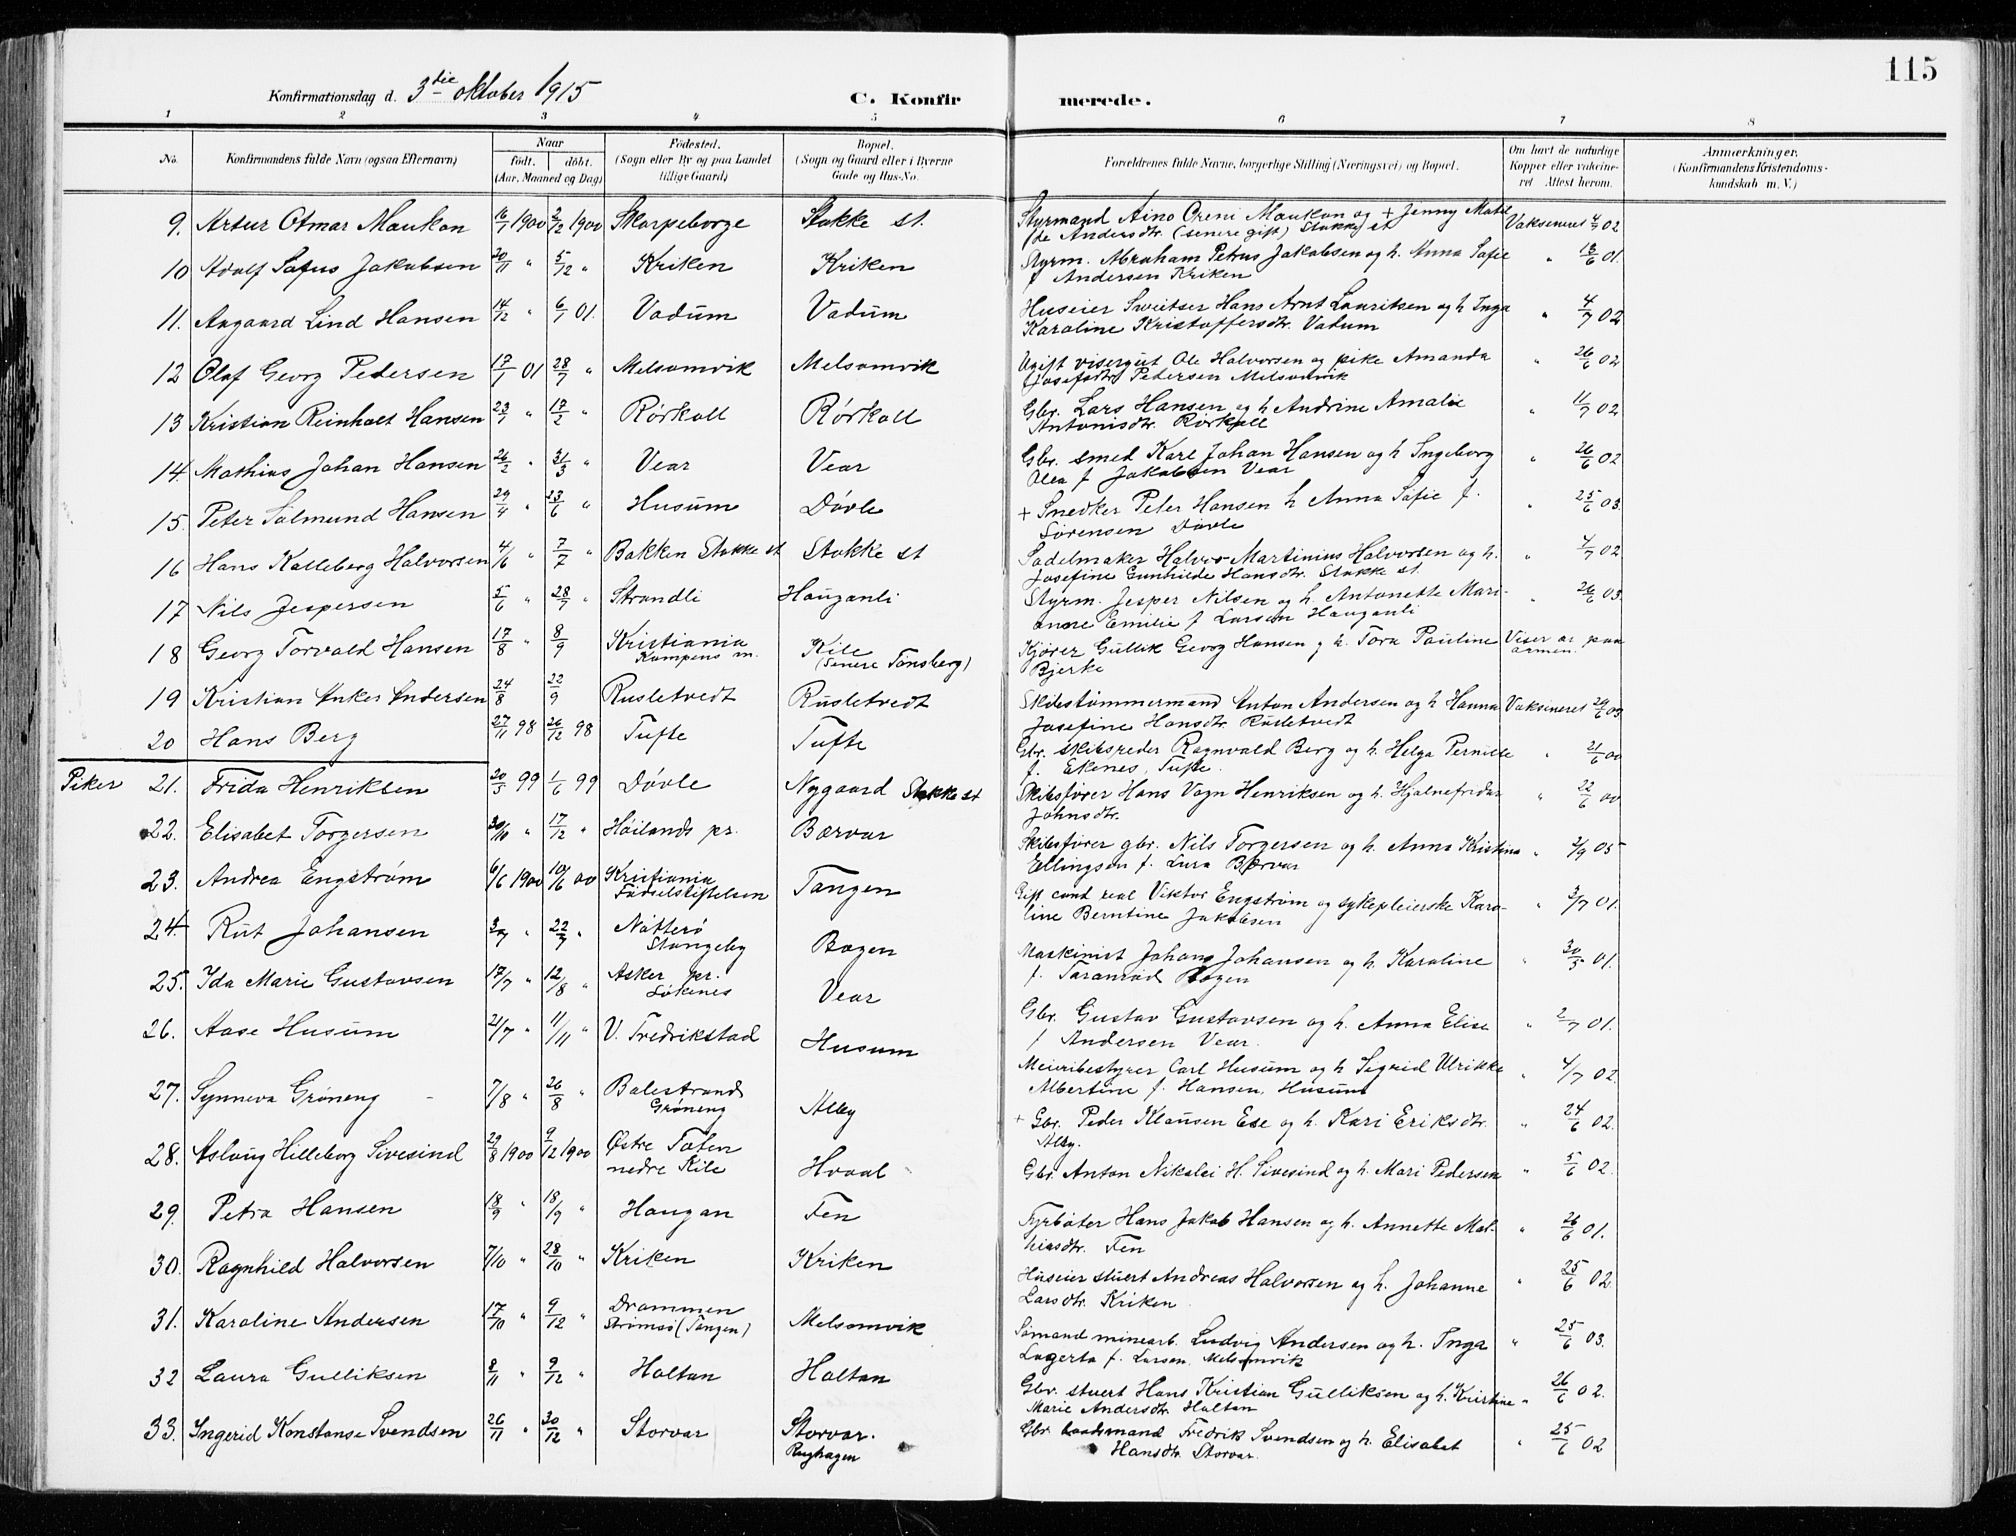 115
Konfirmationsdag d. 3die oktober 1915
C. Konfirmerede.
1 2 3 4 5 6 7 8
No. Konfirmandens fulde Navn (ogsaa Efternavn) Naar født. døbt. (Aar, Maaned og Dag) Fødested. (Sogn eller By og paa Landet tillige Gaard) Bopæl. (Sogn og Gaard eller i Byerne Gade og Hus-No. Forældrenes fulde Navne, borgerlige Stilling (Næringsvei) og Bopæl. Om havt de naturlige Kopper eller vakcineret. Attest herom. Anmærkninger. (Konfirmandens Kristendomskundskab m. V.)
9. Artur Otmar Maukon 16/7 1900 2/12 1900 Skarpeborge Stokke st. Styrmand Aino Oreni Maukon og + Jenny Matilde Andersdtr. (senere gift) Stokke st Vaksineret 4/7 02
10 Adolf Sofus Jakobsen 20/11 " 5/12 " Kriken Kriken Styrm. Abraham Petrus Jakobsen og h. Anna Sofie f Andersen Kriken " 18/6 01.
11. Aagaard Lind Hansen 14/12 " 6/1 01. Vadum Vadum Huseier Sveitser Hans Arnt Lauritsen og h Inga Karoline Kristoffersdtr. Vadum " 4/7 02
12 Olaf Georg Pedersen 17/1 01 28/7 " Melsomvik Melsomvik Ugift visergut Ole Halvorsen og pike Amanda Josefsdtr Pedersen Melsomvik " 26/6 02
13 Kristian Reinholt Hansen 23/1 " 17/2 " Rørkoll Rørkoll Gbr. Lars Hansen og h Andrine Amalie Antonisdtr. Rörkoll " 11/7 02
14. Mathias Johan Hansen 26/2 " 31/3 " Vear Vear Gbr. smed Karl Johan Hansen og h Ingeborg Olea f Jakobsen Vear " 26/6 02
15. Peter Salmund Hansen 29/4 " 23/6 " Husum Døvle + Snedker Peter Hansen h Anna Sofie f. Sørensen Døvle " 25/6 03.
16 Hans Kalleberg Halvorsen 4/6 " 7/7 " Bakken Stokke st Stokke st Sadelmaker Halvor Martinius Halvorsen og h. Josefine Gunhilde Hansdtr. Stokke st. " 4/7 02
17 Nils Jespersen 5/6 " 28/7 " Strandli Hauganli Styrm. Jesper Nilsen og h. Antonette Marianne Emilie f Larsen Hauganli " 26/6 03.
18 Georg Torvald Hansen 17/8 " 8/9 Kristiania Kampens m. Kile (senere Tønsberg) Kjører Gullik Georg Hansen og h. Tora Pauline Bjerke Viser ar paa armen.
19 Kristian Anker Andersen 24/8 22/9 Rusletvedt Rusletvedt Skibstømmermand Anton Andersen og h Hanna Josefine Hansdtr. Rusletvedt Vaksineret 29/6 03
20 Hans Berg 27/11 98 26/12 98 Tufte Tufte Gbr. skibsreder Ragnvald Berg og h. Helga Pernille f. Ekenes, Tufte. " 21/6 00
Piker 21. Frida Henriksen 20/3 99 1/6 99 Døvle Nygaard Stokke st Skibsfører Hans Vogn Henriksen og h. Hjalnefridar Johnsdtr. " 22/6 00
22. Elisabet Torgersen 30/10 " 17/12 " Høilands pr. Bærvar Skibsfører gbr. Nils Torgersen og h. Anna Kristina Ellingsen f. Lura Bærvar " 2/9 05
23. Andrea Engstrøm 6/6 1900 10/6 00 Kristiania Fødselstiftelsen Tangen Gift cand real Viktor Engstrøm og sykepleierske Karoline Berntine Jakobsen " 3/7 01.
24. Rut Johansen 3/7 " 22/7 " Nøtterø Stangeby Bogen Maskinist Johans Johansen og h. Karoline f. Taranrød Bogen " 30/5 01.
25. Ida Marie Gustavsen 17/7 " 12/8 " Asker pr. Løkenes Vear Gbr. Gustav Gustavsen og h. Anna Elise f Andersen Vear " 2/7 01.
26. Aase Husum 21/7 " 11/11 " V. Fredrikstad Husum Meieribestyrer Carl Husum og h Sigrid Ulrikke Albertine f. Hansen, Husum " 4/7 02.
27. Synneva Grøneng 7/8 " 26/8 " Balestrand Grøneng Alby + Gbr. Peder Klausen Ese og h. Kari Eriksdtr. Alby. " 24/6 02.
28. Aslaug Hilleborg Sivesind 29/8 1900 9/12 1900 Østre Toten nedre Kile Hvaal Gbr. Anton Nikolei H. Sivesind og h. Mari Pedersen " 5/6 02.
29. Petra Hansen 18/9 " 18/9 " Haugan Fen Fyrbøter Hans Jakob Hansen og h. Annette Mathiasdtr. Fen " 26/6 01.
30. Ragnhild Halvorsen 7/10 " 28/10 " Kriken Kriken Huseier stuert Andreas Halvorsen og h. Johanne Larsdtr. Kriken " 25/6 02
31. Karoline Andersen 17/10 " 9/12 " Drammen Strømsø (Tangen) Melsomvik Sømand minearb. Ludvig Andersen og h. Inga Lagerta f. Larsen, Melsomvik " 25/6 03.
32 Laura Gulliksen 8/11 " 9/12 " Holtan Holtan Gbr. stuert Hans Kristian Gulliksen og h. Kristine Marie Andersdtr. Holtan " 26/6 02.
33. Ingerid Konstanse Svendsen 26/11 " 30/12 " Storvar Storvar. Rughagen Gbr. baadsmand Fredrik Svendsen og h. Elisabet Hansdtr. Storvar " 25/6 02